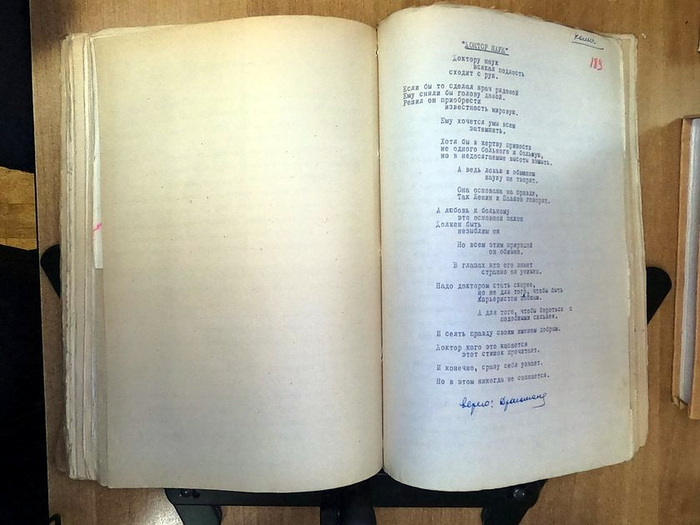 копия
189
"ДОКТОР НАУК"
Доктору наук
всякая подлость
сходит с рук.
Если бы то сделал врач рядовой
Ему сняли бы голову долой.
Решил он приобрести
известность мировую.
Ему хочется умы всем
затемнить.
Хотя бы в жертву принести
не одного больного и больную,
но в недосягаемые высоты взмыть.
А ведь ложью и обманом
науку не творят.
Она основана на правде,
Так Ленин и Павлов говорят.
А любовь к больному
это основной закон
Должен быть
незыблим он
Но всем этим природой
он обижен.
В глазах кто его знает
страшно он унижен.
Надо доктором стать скорее,
но не для того, чтобы быть
Карьеристом
А для того, чтобы бороться с
подобными
И сеять правду своим именем добрым.
Доктор кого это касается
этот стишок прочитает.
И конечно, сразу себя узнает.
Но в этом никогда не
верно: